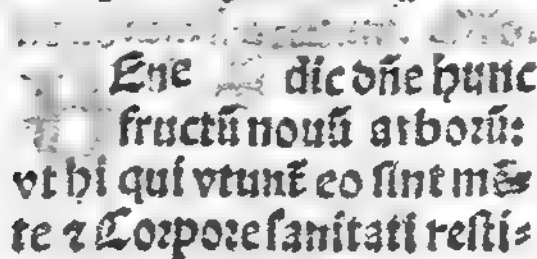 Ene dic dñe hunc
fructũ nouũ arboꝛũ:
vt hi qui vtunt̃ eo sint mẽ⸗
te ⁊ Coꝛpoꝛe sanitati resti⸗